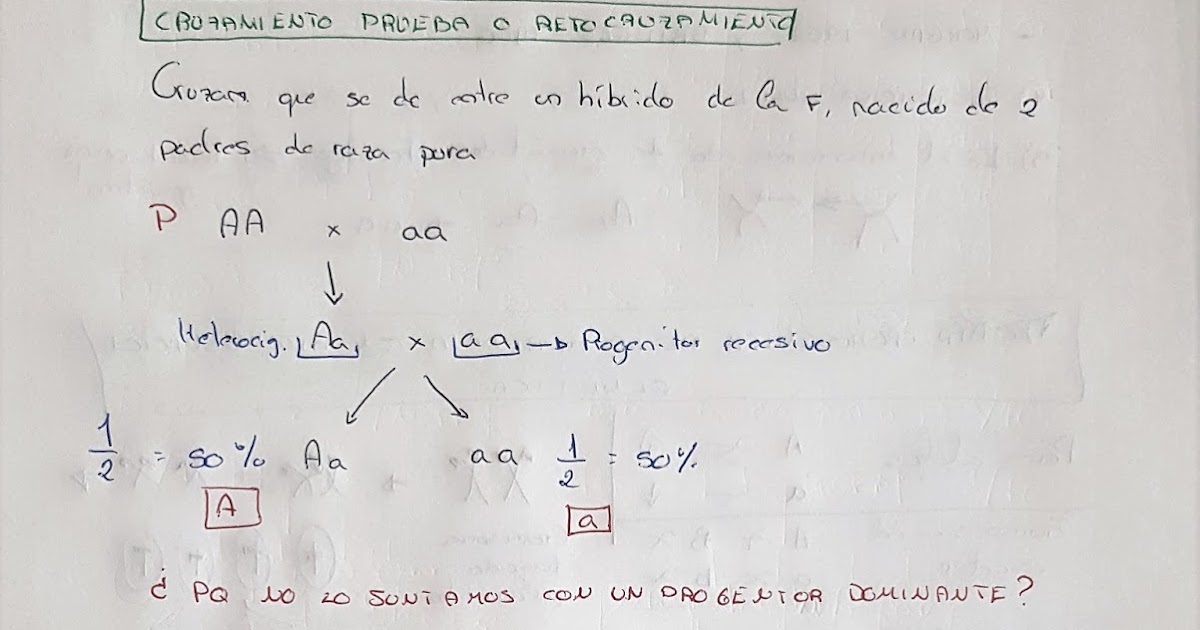 CRUZAMIENTO PRUEBA O RETOCRUZAMIENTO
Cruzam que se da entre un híbrido de la F1 nacido de 2
padres de raza pura
P AA x aa
Heterocig. Aa x aa → Progenitor recesivo
1/2 = 50% Aa aa 1/2 = 50%
A a
¿ PQ NO LO JUNTAMOS CON UN PROGENITOR DOMINANTE?